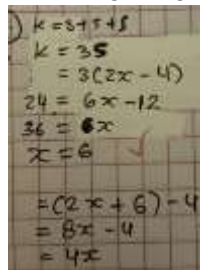 k = 3 + 5 + 8
k = 35
= 3(2x - 4)
24 = 6x - 12
36 = 6x
x = 6
= (2x + 6) - 4
= 8x - 4
= 4x